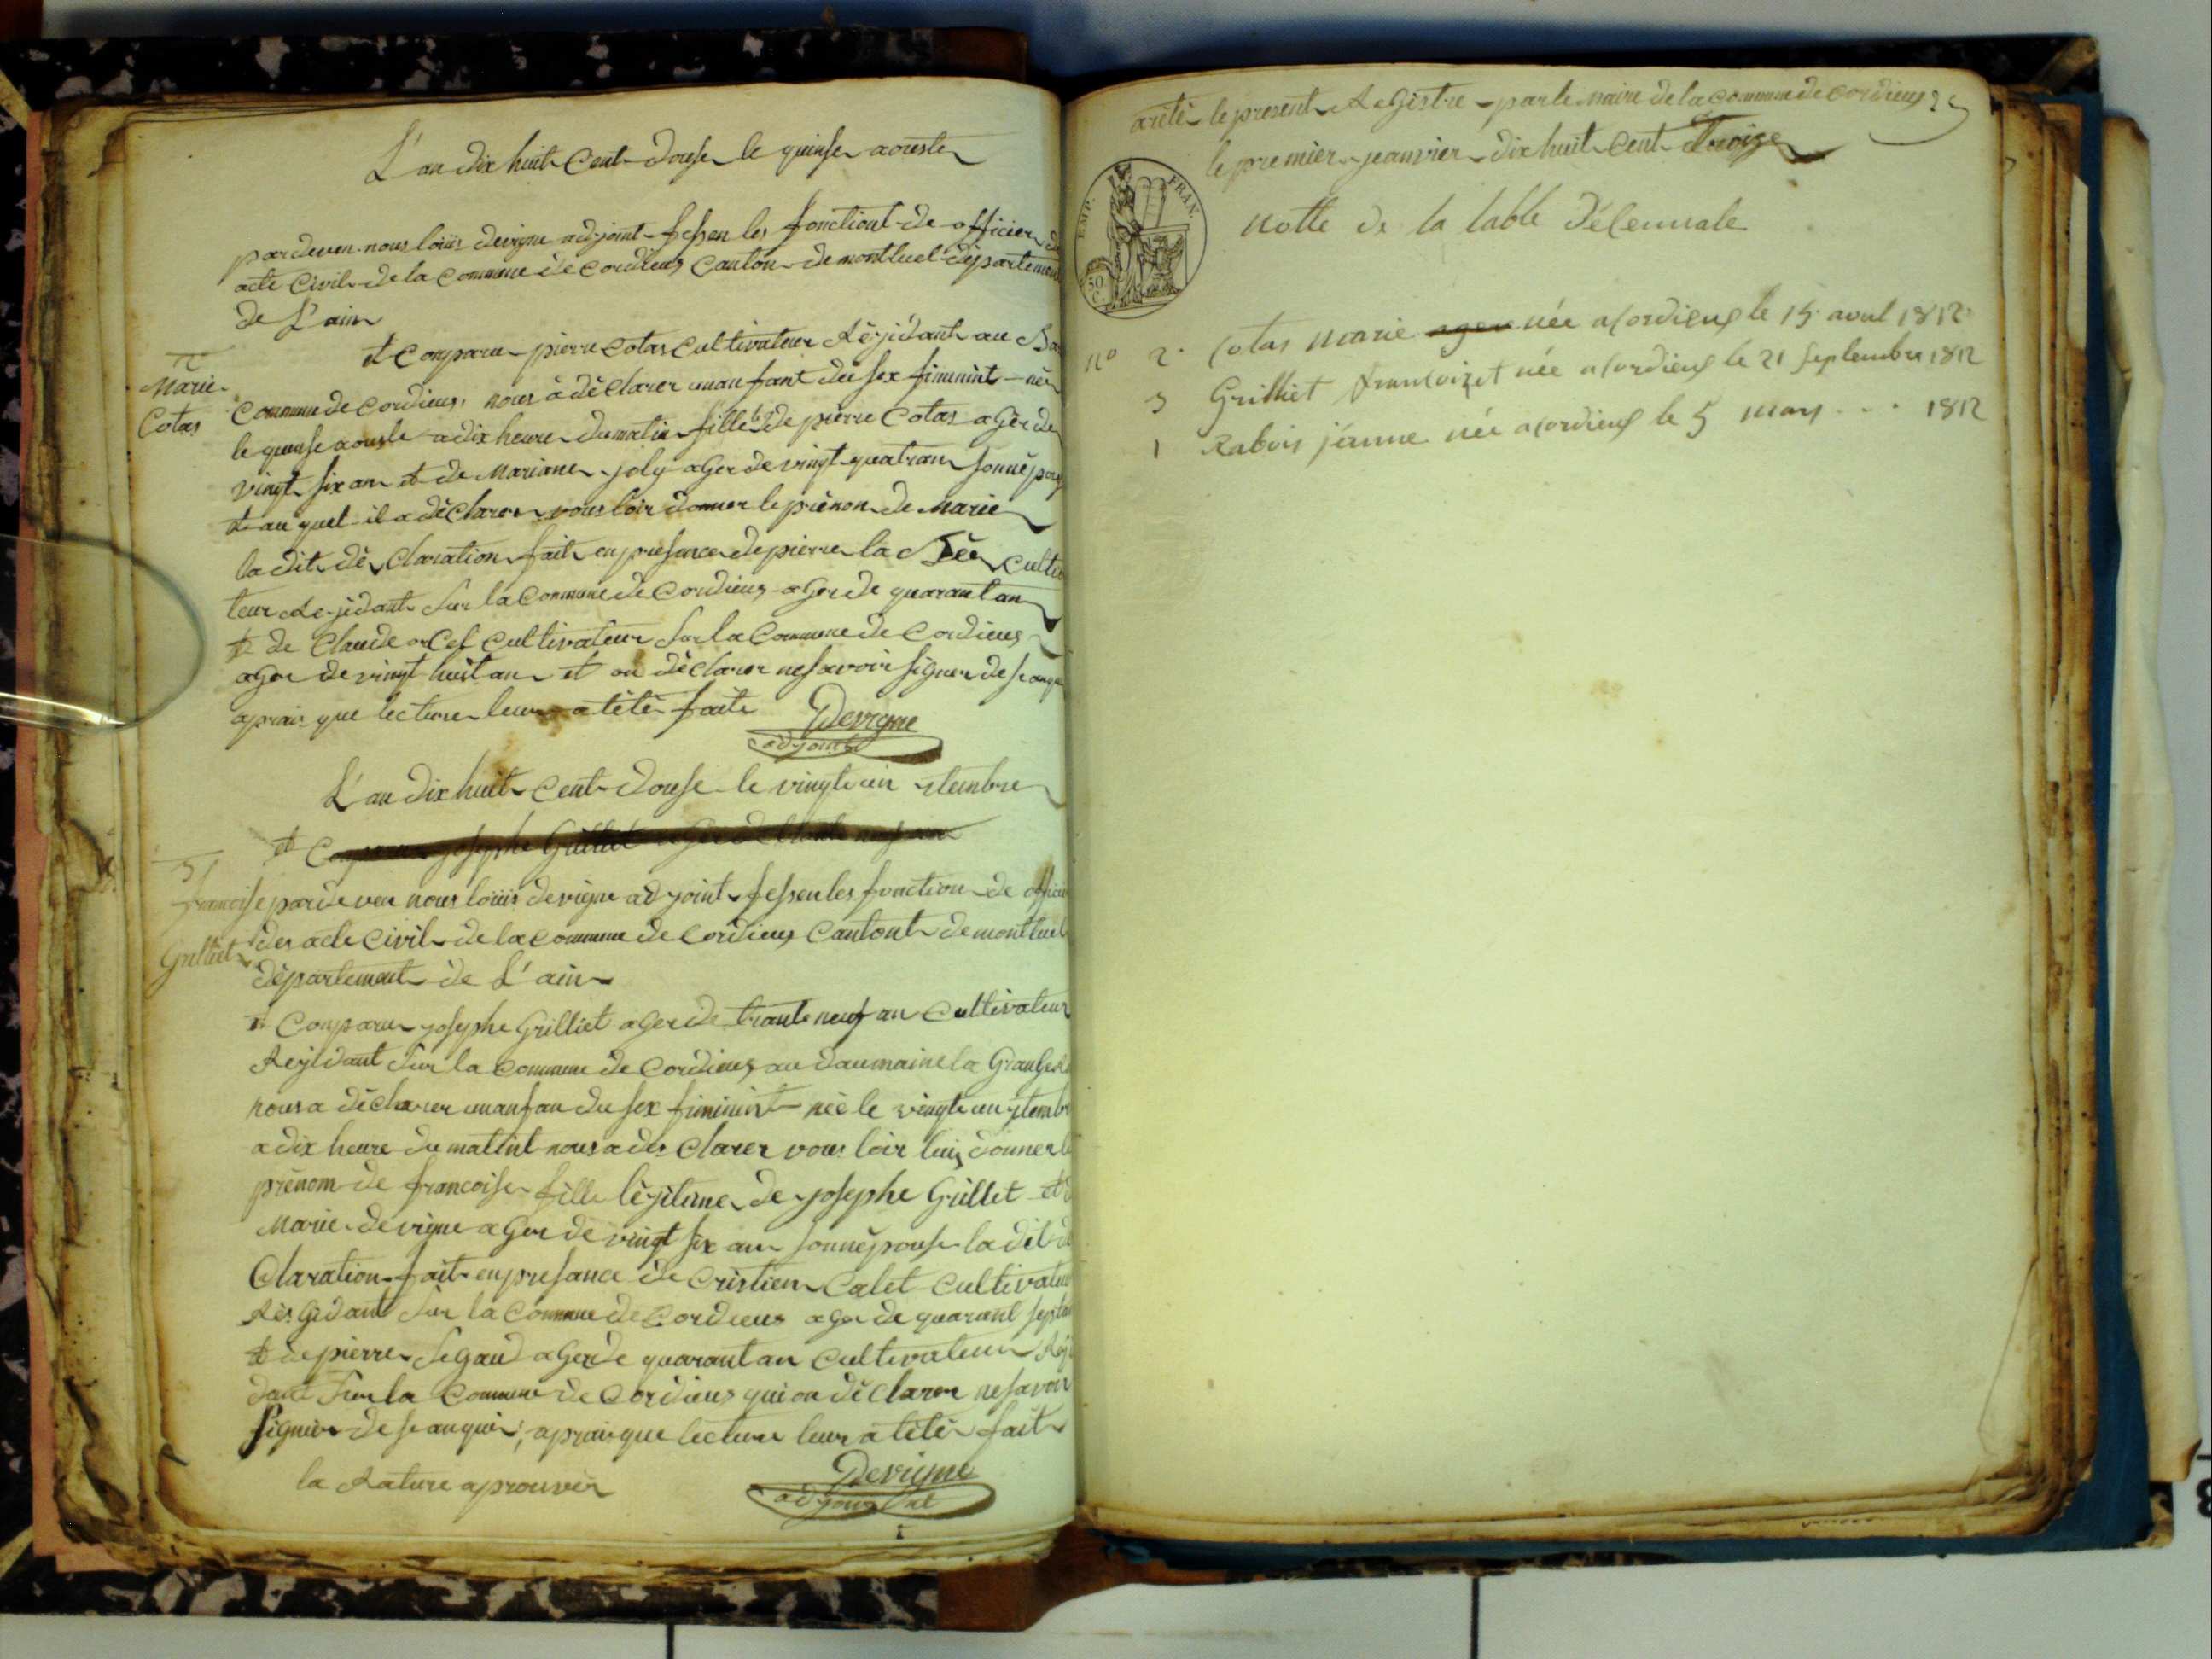 L'an dix huit Cent douse le quinse aouste
par deven nous loüis devigne adjoint fesen les fonctiont de officier de
acte Civil de la Commune de Cordieus Canton de montluel departement
de L'ain
et Conparu pierre Cotas Cultivateur Rèzidant au
2
Marie
Cotas
Commune de Cordieus, nous à dèclarer unanfant du sex fiminint née
le quinse aouste a dix heure du matin fille de pierre Cotas ager de
vingt six an et de Mariane joly ager de vingt quatran sonnèpous
et au quel il a dèclarer vous loir donner le prènon de Marie
la dit dèclaration fait en presence de pierre la Culti
teur Rezidant sur la Commune de Cordieus ager de quarantan
et de Claude Cultivateur sur la Commune de Cordieus
ager de vingt huit an et on dèclarer ne savoir signer de se anquis
aprais que lecture leur a tètè fait
Devigne
adjoint
L'an dix huit Cent douse le vingte un 7tembre
et Conparu josephe Grilliet ager de trante neuf an
3
francoise
Grilliet
par de ven nous loüis devigne adjoint fessen les fonction de officier
des acte Civil de la Commune de Cordieus Cantont de montluel
dèpartement de L'ain
et Conparu josephe Grilliet ager de trante neuf an Cultivateur
Rezidant sur la Commune de Cordieus au daumaine la Grange
nous a dèclarer unanfan du sex fiminint née le vingte un 7tembre
a dix heure du matint nous a des Clarer vous loir luis donner le
prènom de francoise fille lègitime de josephe Grilliet et d
Marie devigne ager de vingt six an sonnèpouse la dit d
Claration fait en presance de Cristien Calet Cultivateur
Rès Gidant sur la Commune de Cordieus ager de quarant sept an
et de pierre Segaud ager de quarant an Cultivateur Rèzi
dant sur la Commune de Cordieus qui on dèclarer ne savoir
signier de se anquis, aprais que lecture leur a tètè fait
la Rature aprouvèr
Devigne
adjoint
arètè le present Registre par le maire de la Commune de Cordieus
le premier jeanvier dix huit Cent Treize
EMP. FRAN.
50 C.
notte de la table décennale
n° 2 Cotas marie agee née a Cordieux le 15 aout 1812
3 Grilliet francoizet née a Cordieux le 21 Septembre 1812
1 Rabois jeanne née a Cordieux le 5 mars . . . 1812